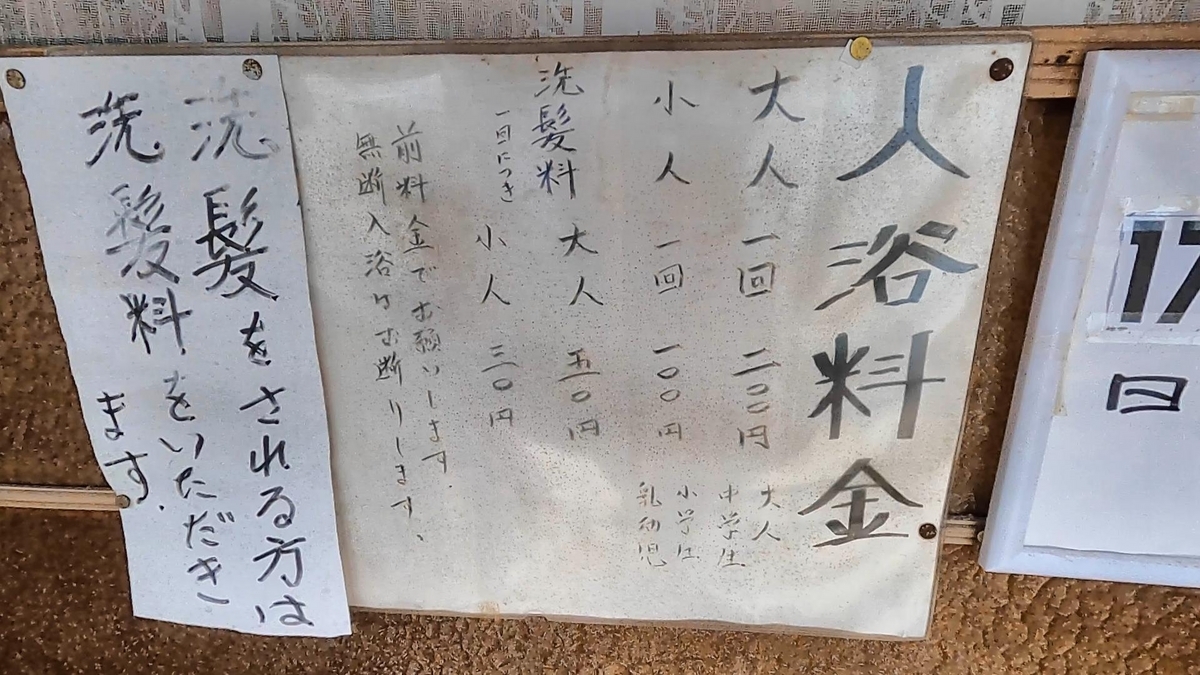 入浴料金
大人 一回 二〇〇円 大人 中学生
小人 一回 一〇〇円 小学生 乳幼児
洗髪料 一回につき
大人 五〇円
小人 三〇円
前料金でお願いします.
無断入浴はお断りします、
洗髪をされる方は
洗髪料をいただき
ます.
17
日